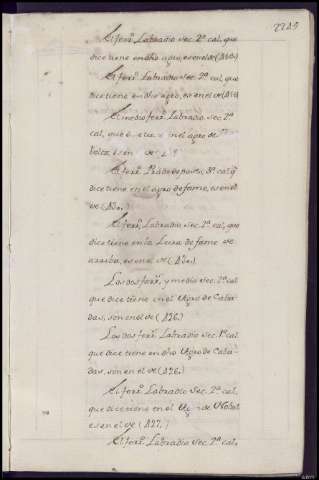 2245
El ferr.º Labradio sec. 2ª cal, que
dice tiene en dho agro, es en el de
El ferr.º Labradio sec. 2ª cal, que
dice tiene en dho agro, es en el de
El medio ferr.º Labradio sec. 2ª
cal, que dice tiene en el agro de
es en el de
El ferr.º Prado de pasto, 3ª cal q̃
dice tiene en el agro de fame, es en el
de
El ferr.º Labradio sec. 2ª cal, que
dice tiene en la Leira de fame de
arriba, es en el de
Los dos ferr.s y medio sec. 2ª cal
que dice tiene en el Agro de Caba-
das, son en el de (126.)
Los dos ferr.s Labradio sec. 1ª cal
que dice tiene en dho Agro de Caba-
das, son en el de (126.)
El ferr.º Labradio sec. 2ª cal,
que dice tiene en el Agro de Nobal
es en el de (127.)
El ferr.º Labradio sec. 2ª cal,